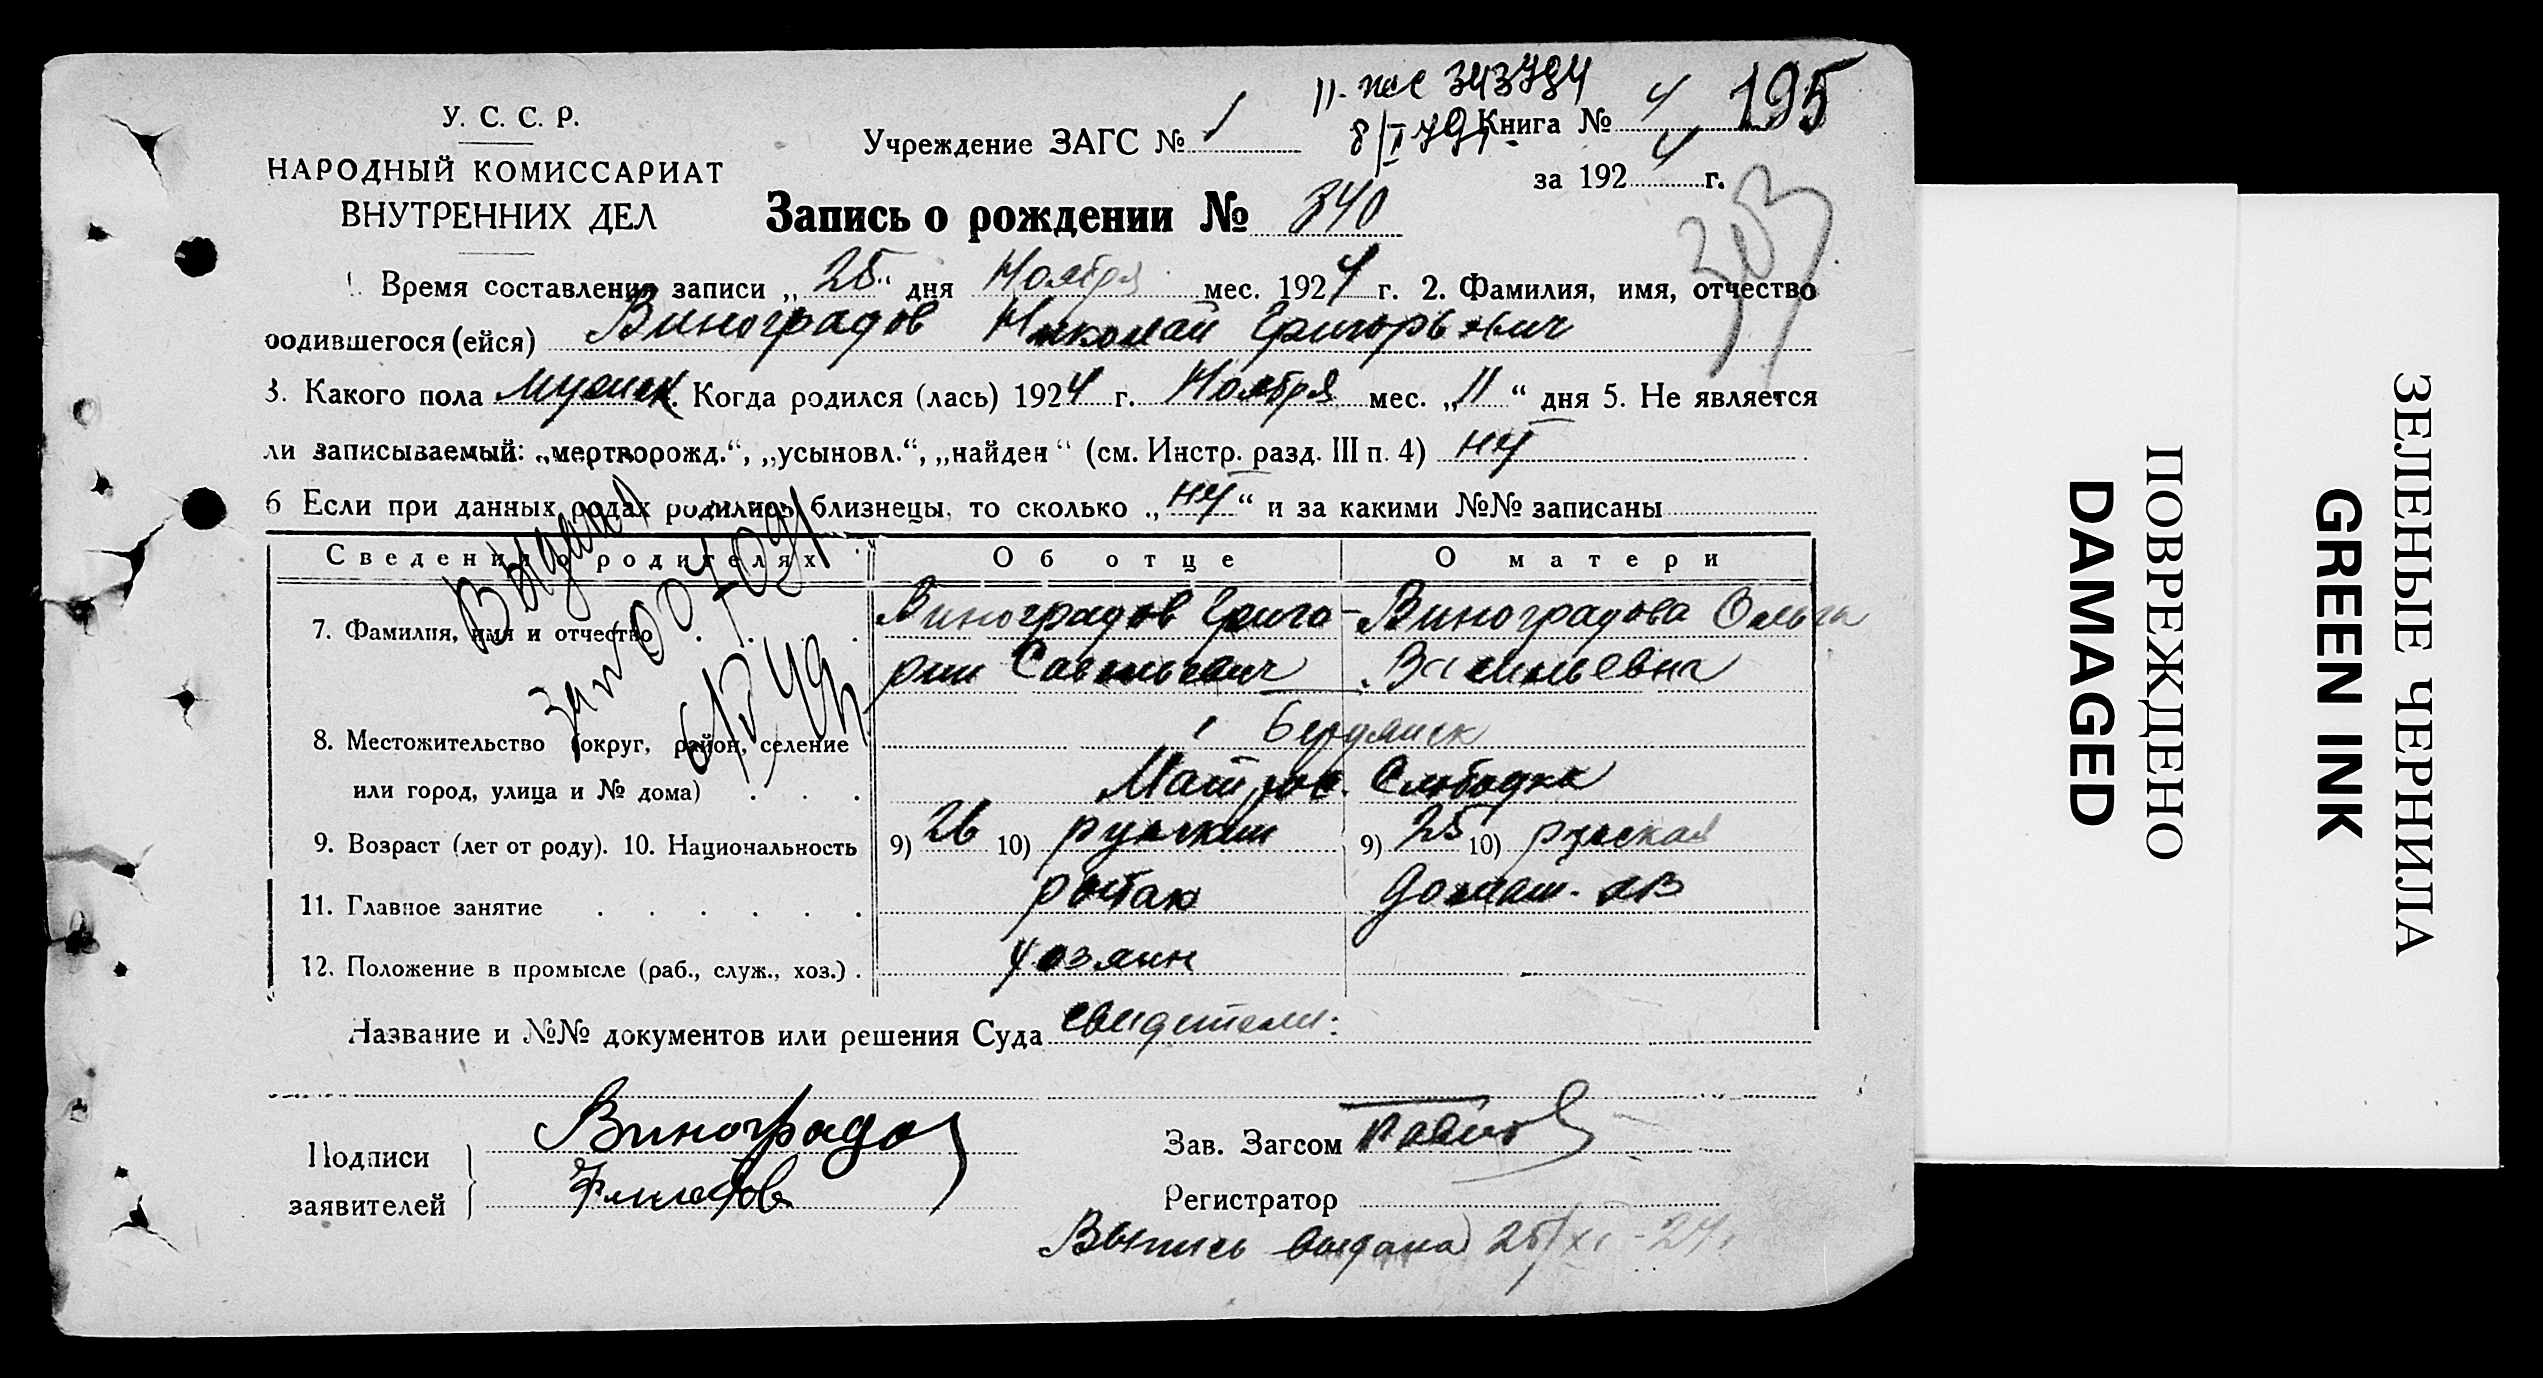 II-ЖС 343794
8/II 79г.
195
У. С. С. Р.
НАРОДНЫЙ КОМИССАРИАТ
ВНУТРЕННИХ ДЕЛ
Учреждение ЗАГС № 1
Книга № 4
за 1924 г.
Запись о рождении № 840
1. Время составления записи „25“ дня Ноября мес. 1924 г. 2. Фамилия, имя, отчество
родившегося (ейся) Виноградов Николай Григорьевич
3. Какого пола мужск. Когда родился (лась) 1924 г. Ноября мес. „11“ дня 5. Не является
ли записываемый: „мертворожд.“, „усыновл.“, „найден“ (см. Инстр. разд. III п. 4) нет
6 Если при данных родах родились близнецы, то сколько „нет“ и за какими №№ записаны
Сведения о родителях Об отце О матери
7. Фамилия, имя и отчество Виноградов Григо- Виноградова Ольга
рий Савельевич Васильевна
8. Местожительство (округ, район, селение Бердянск
или город, улица и № дома) Матрос. Слободка
9. Возраст (лет от роду). 10. Национальность 9) 26 10) русский 9) 25 10) русская
11. Главное занятие рыбак домаш. хоз
12. Положение в промысле (раб., служ., хоз.) хозяин
Название и №№ документов или решения Суда свидетели:
Подписи
заявителей
Виноградов
Филатов
Зав. Загсом
Регистратор
Выпись выдана 25/XI-24г.
ПОВРЕЖДЕНО
DAMAGED
ЗЕЛЕНЫЕ ЧЕРНИЛА
GREEN INK